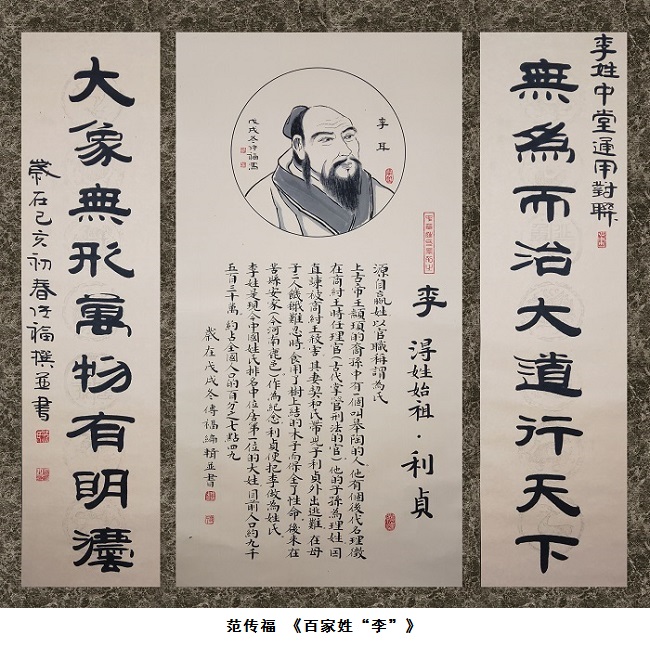 李姓中堂運用對聯
無為而治大道行天下
李耳
戊戌冬传福寫
李 得姓始祖·利貞
源自嬴姓以官職稱謂為氏
上古帝王顓頊的裔孫中有一個叫皋陶的人他有個後代名理徵
在商紂王時任理官(古代掌管刑法的官)他的子孫為理姓因
直諫被商紂王殺害其妻契和氏帶兒子利貞外出逃難在母
子二人饑餓難忍時食用了樹上結的木子而保全了性命後來在
苦縣安家(今河南鹿邑)作為紀念利貞便把李做為姓氏
李姓是現今中國姓氏排名中位居第一位的大姓目前人口約九千
五百三十萬約占全國人口的百分之七點四九
歲在戊戌冬傳福編並書
大象無形萬物有明灋
歲在己亥初春传福撰並書
范传福 《百家姓“李”》